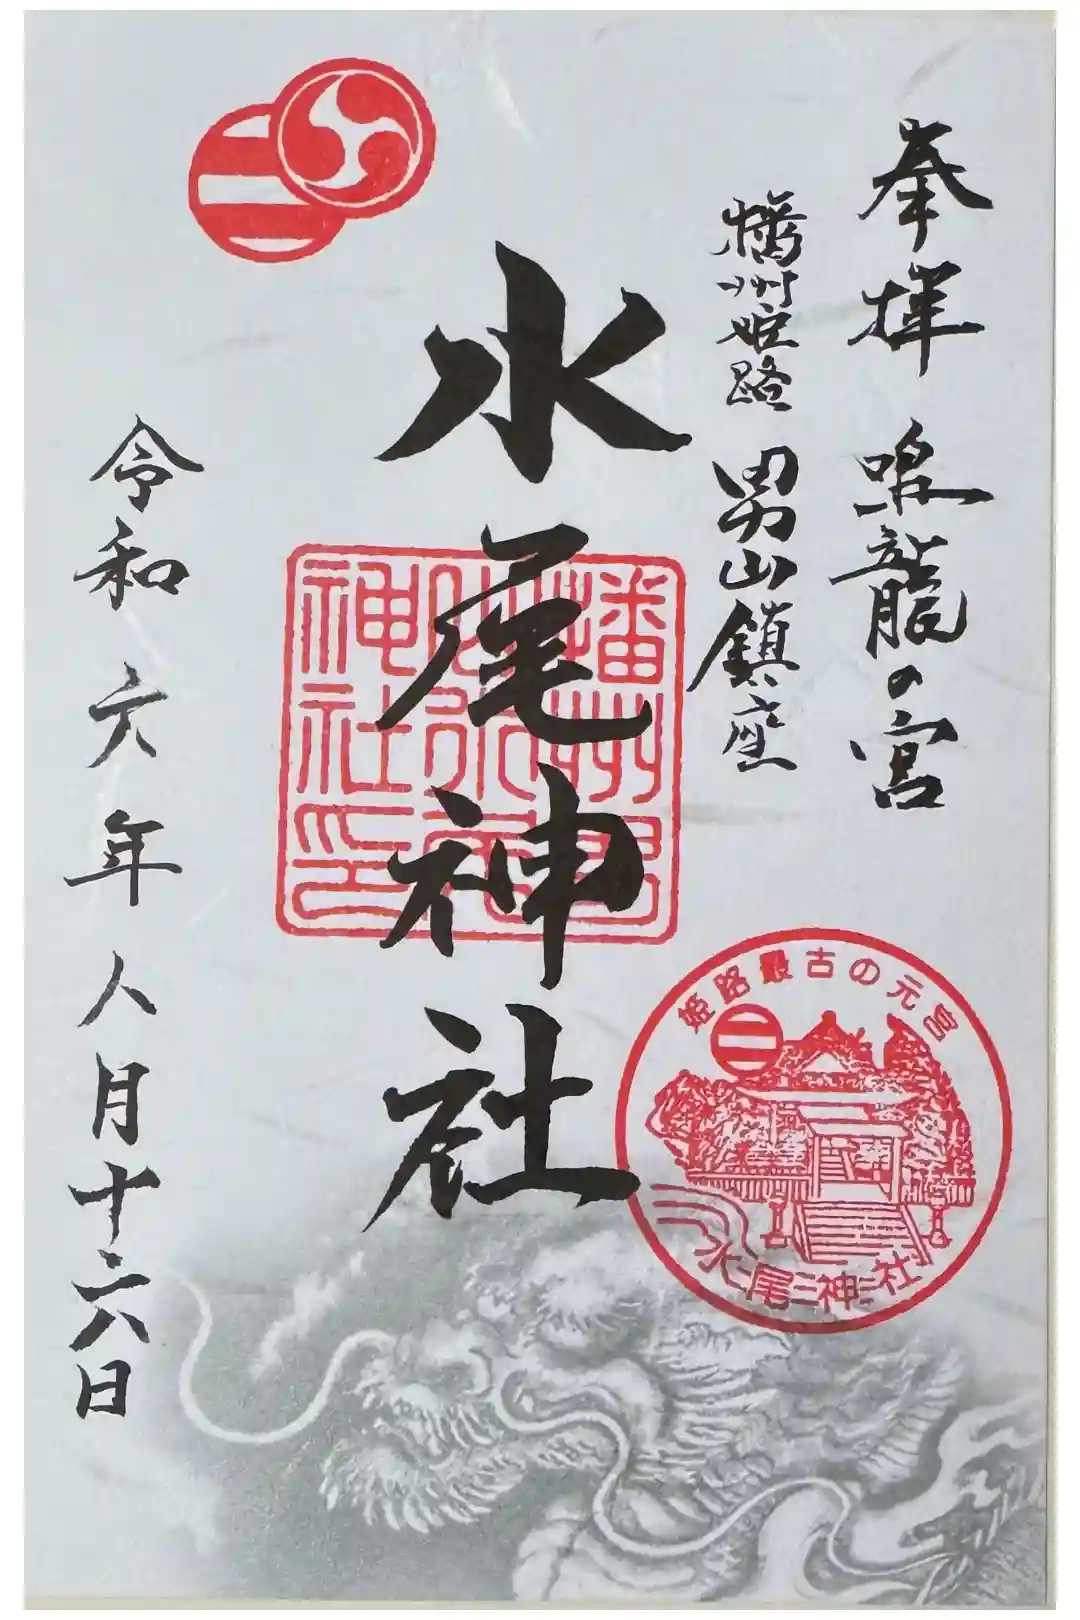 奉拝 龍の宮
播州姫路 男山鎮座
水尾神社
令和六年八月十六日
播州男
山水尾
神社印
姫路最古の元宮
水尾神社